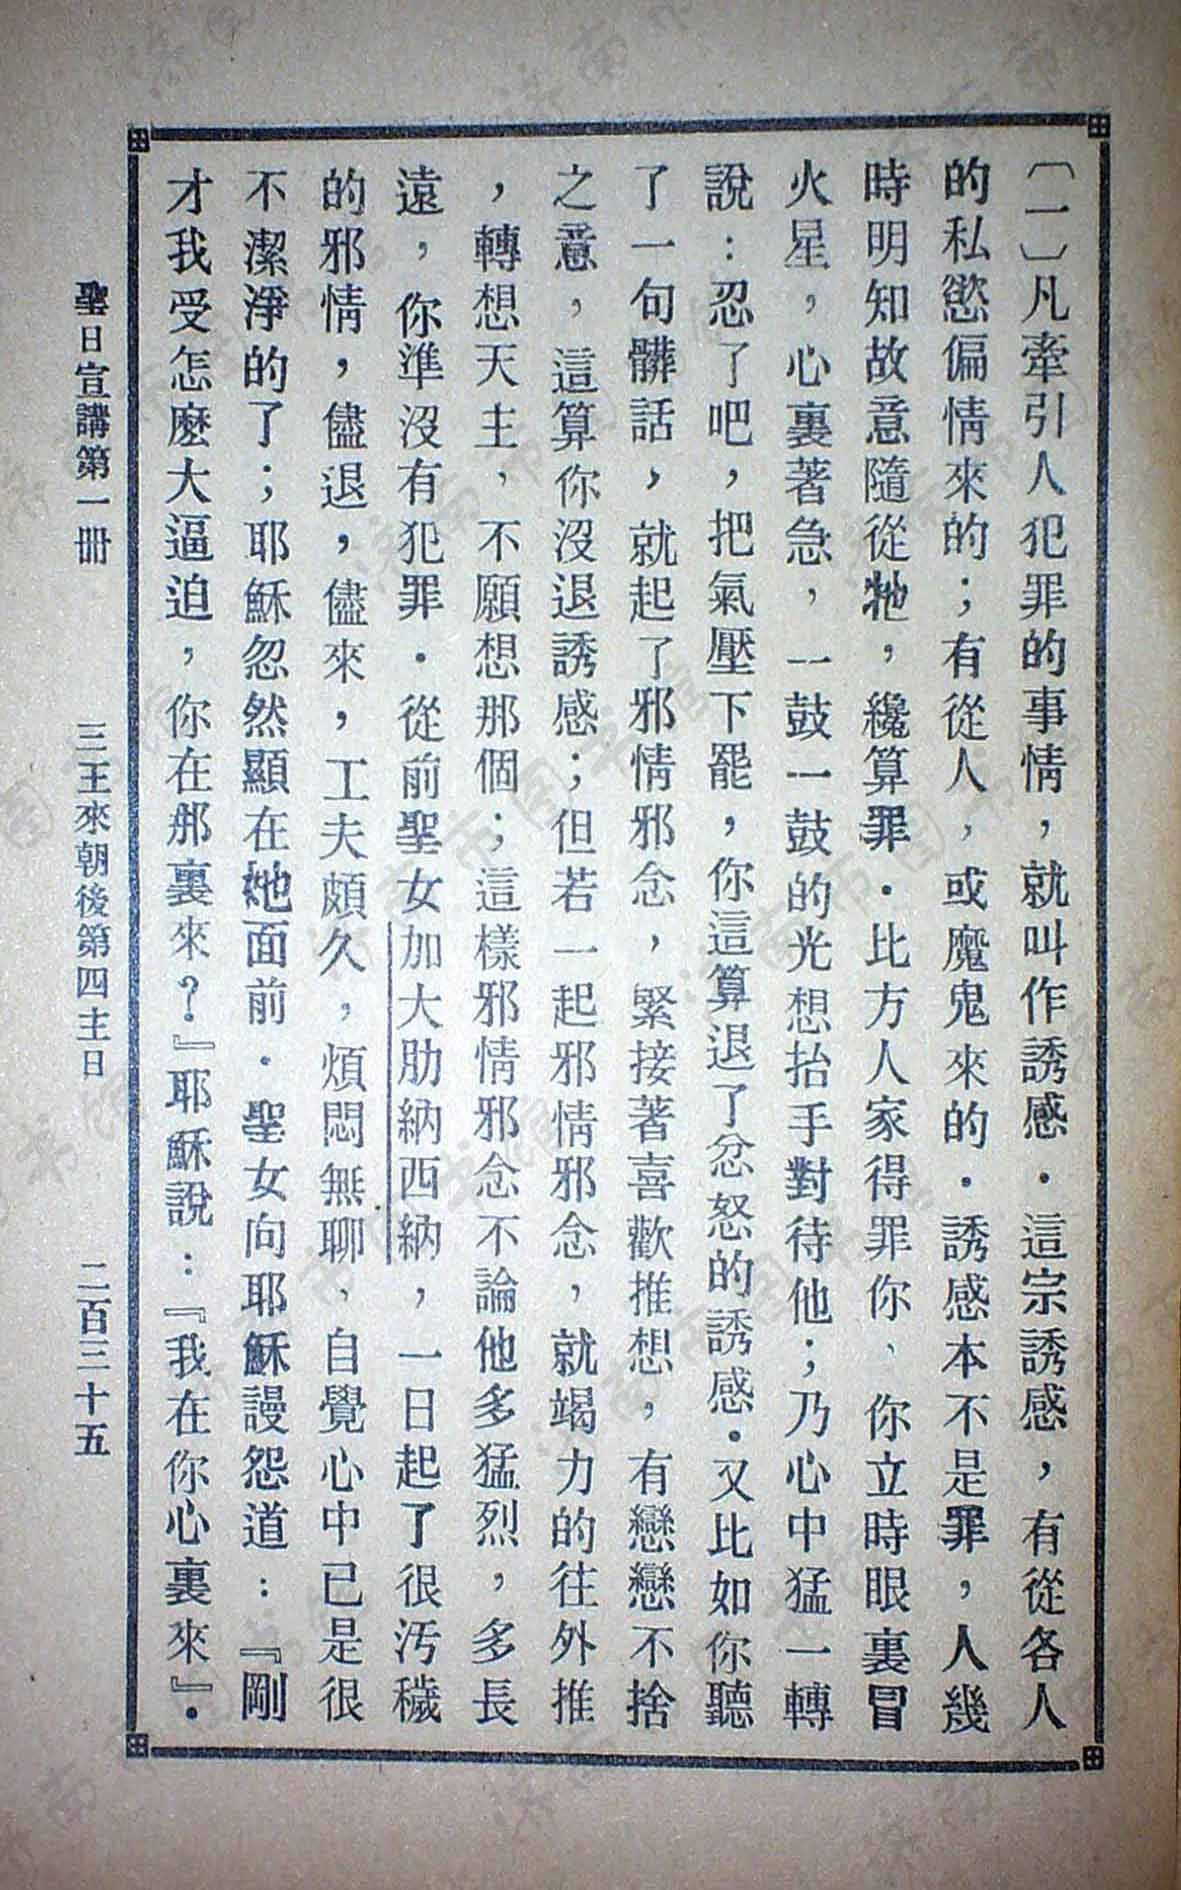 〔一〕凡牽引人犯罪的事情，就叫作誘感．這宗誘感，有從各人
的私慾偏情來的；有從人，或魔鬼來的．誘感本不是罪，人幾
時明知故意隨從牠，纔算罪．比方人家得罪你、你立時眼裏冒
火星，心裏著急，一鼓一鼓的光想抬手對待他；乃心中猛一轉
說：忍了吧，把氣壓下罷，你這算退了忿怒的誘感．又比如你聽
了一句髒話，就起了邪情邪念，緊接著喜歡推想，有戀戀不捨
之意，這算你沒退誘感；但若一起邪情邪念，就竭力的往外推
，轉想天主，不願想那個；這樣邪情邪念不論他多猛烈，多長
遠，你準沒有犯罪．從前聖女加大肋納西納，一日起了很汚穢
的邪情，儘退，儘來，工夫頗久，煩悶無聊，自覺心中已是很
不潔淨的了；耶穌忽然顯在她面前．聖女向耶穌謾怨道：『剛
才我受怎麽大逼迫，你在那裏來？』耶穌說：『我在你心裏來』．
聖日宣講第一冊　三王來朝後第四主日　二百三十五